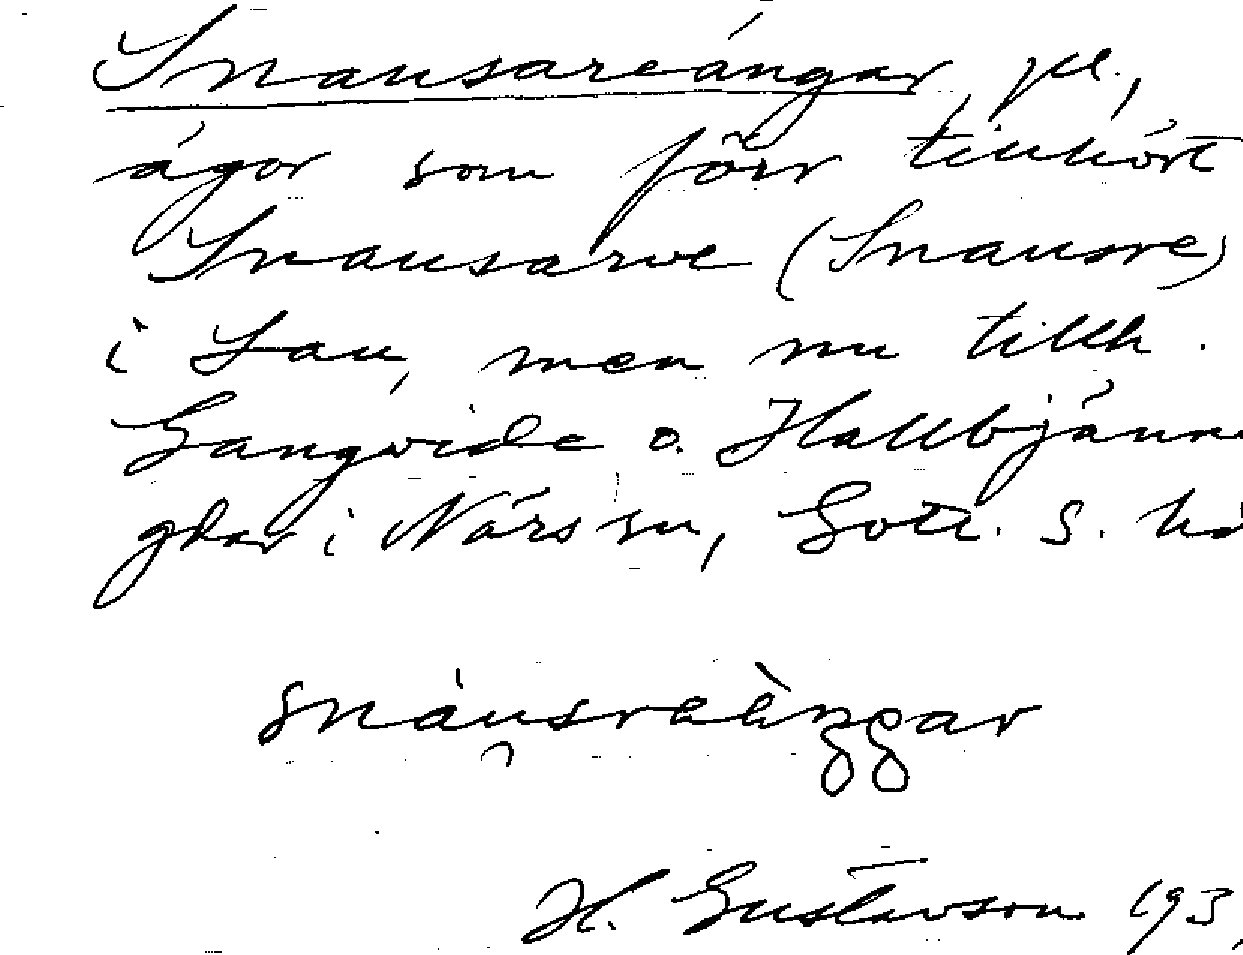 Snausareängar pl.,
ägor som förr tillhört
Snausarve (Snausre)
i Lau, men nu tillh.
Gangvide o. Hallbjänne
gdar i Närs sn, Gotl. S. hd
snáusreèŋgar
H. Gustavson 193